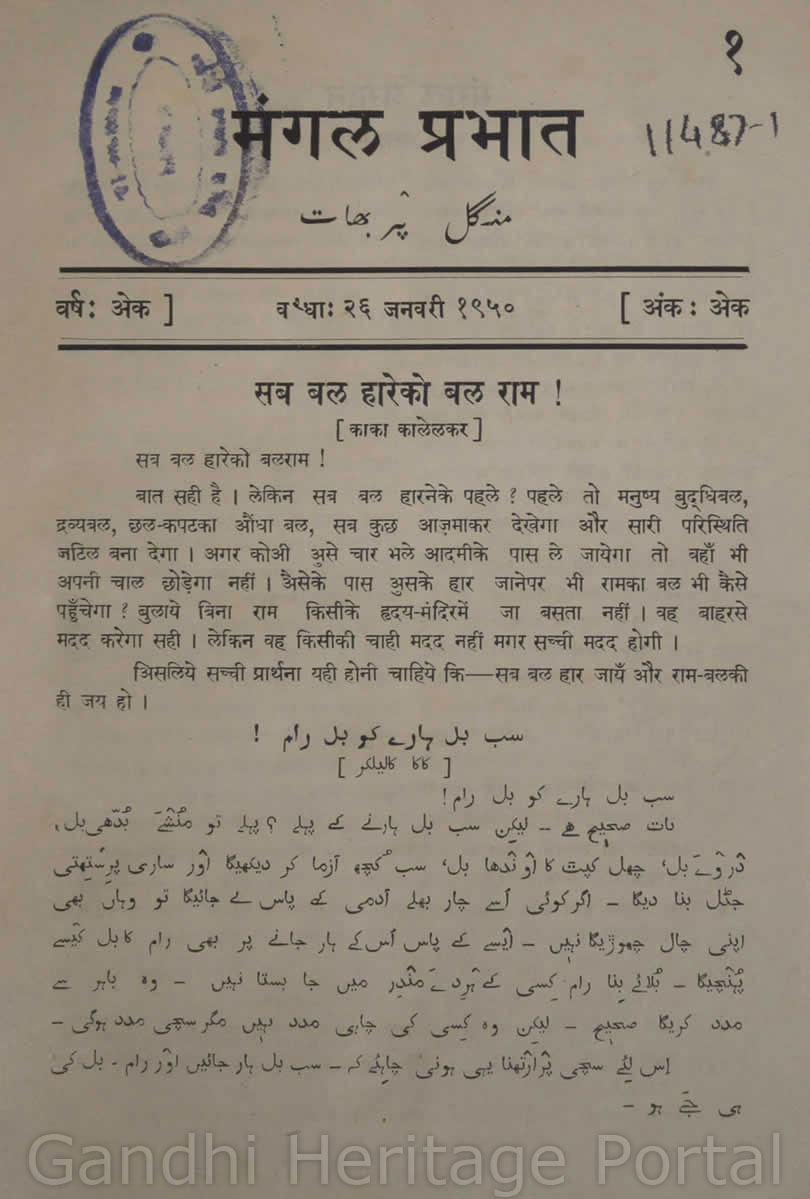 १
मंगल प्रभात
11487-1
منگل پربھات
वर्ष: अेक ] वर्धा: २६ जनवरी १९५० [ अंक: अेक
सब बल हारेको बल राम !
[ काका कालेलकर ]
सब बल हारेको बलराम !
बात सही है । लेकिन सब बल हारनेके पहले ? पहले तो मनुष्य बुद्धिबल,
द्रव्यबल, छल-कपटका औंधा बल, सब कुछ आज़माकर देखेगा और सारी परिस्थिति
जटिल बना देगा । अगर कोअी अुसे चार भले आदमीके पास ले जायेगा तो वहाँ भी
अपनी चाल छोड़ेगा नहीं । अैसेके पास अुसके हार जानेपर भी रामका बल भी कैसे
पहुँचेगा ? बुलाये बिना राम किसीके हृदय-मंदिरमें जा बसता नहीं । वह बाहरसे
मदद करेगा सही । लेकिन वह किसीकी चाही मदद नहीं मगर सच्ची मदद होगी ।
अिसलिये सच्ची प्रार्थना यही होनी चाहिये कि—सब बल हार जायँ और राम-बलकी
ही जय हो ।
سب بل ہارے کو بل رام !
[ کاکا کالیلکر ]
سب بل ہارے کو بل رام!
بات صحیح ہے ـ لیکن سب بل ہارنے کے پہلے ؟ پہلے تو مُنُشیَہ بُدّھی بل،
دَرَوْیَہ بل، چھل کپٹ کا اَوندھا بل، سب کُچھ آزما کر دیکھیگا اَور ساری پرِستھِتی
جٹل بنا دیگا ـ اگر کوئی اُسے چار بھلے آدمی کے پاس لے جائیگا تو وہاں بھی
اپنی چال چھوڑیگا نہیں ـ اَیسے کے پاس اُس کے ہار جانے پر بھی رام کا بل کَیسے
پُہنچیگا ـ بُلائے بِنا رام کِسی کے ہَردَے مَندِر میں جا بستا نہیں ـ وہ باہر سے
مدد کریگا صحیح ـ لیکن وہ کِسی کی چاہی مدد نہیں مگر سچی مدد ہوگی ـ
اِس لِئے سچی پْرارْتھنا یہی ہونی چاہِئے کہ ـ سب بل ہار جائیں اَور رام ـ بل کی
ہی جَے ہو ـ
Gandhi Heritage Portal